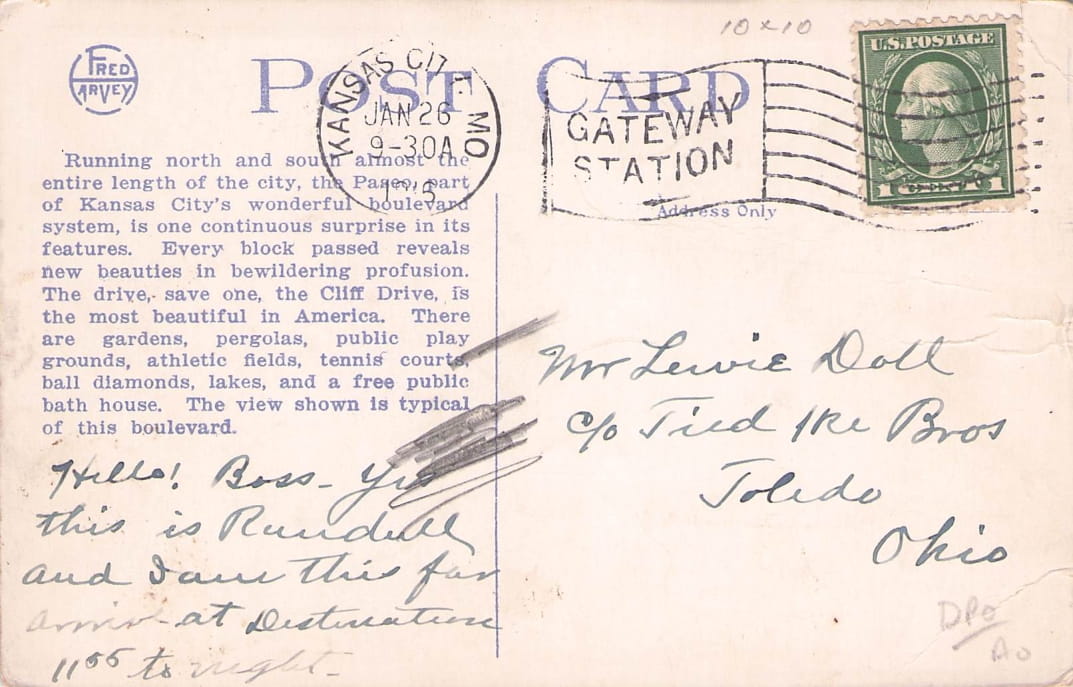 10 x 10
FRED
HARVEY
POST CARD
U.S. POSTAGE
1 1
KANSAS CITY MO
JAN 26
9-30A
GATEWAY
STATION
Address Only
Running north and south almost the
entire length of the city, the Paseo, part
of Kansas City's wonderful boulevard
system, is one continuous surprise in its
features. Every block passed reveals
new beauties in bewildering profusion.
The drive, save one, the Cliff Drive, is
the most beautiful in America. There
are gardens, pergolas, public play
grounds, athletic fields, tennis courts,
ball diamonds, lakes, and a free public
bath house. The view shown is typical
of this boulevard.
Hello! Boss - Yes
this is Rundell
and I am this far
arrive at Destination
11 55 to night -
Mr Lewie Doll
c/o Bros
Toledo
Ohio
DPO